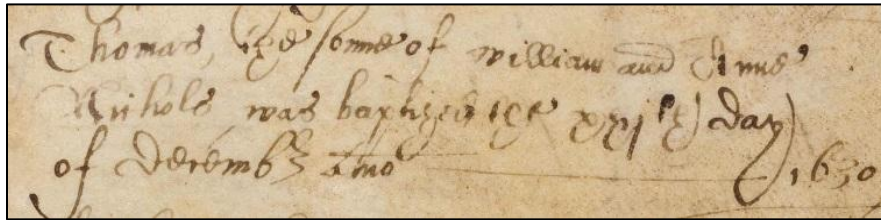 Thomas, the sonne of william and Anne
Nichols, was baptized the xxjth day
of decemb Ano 1630